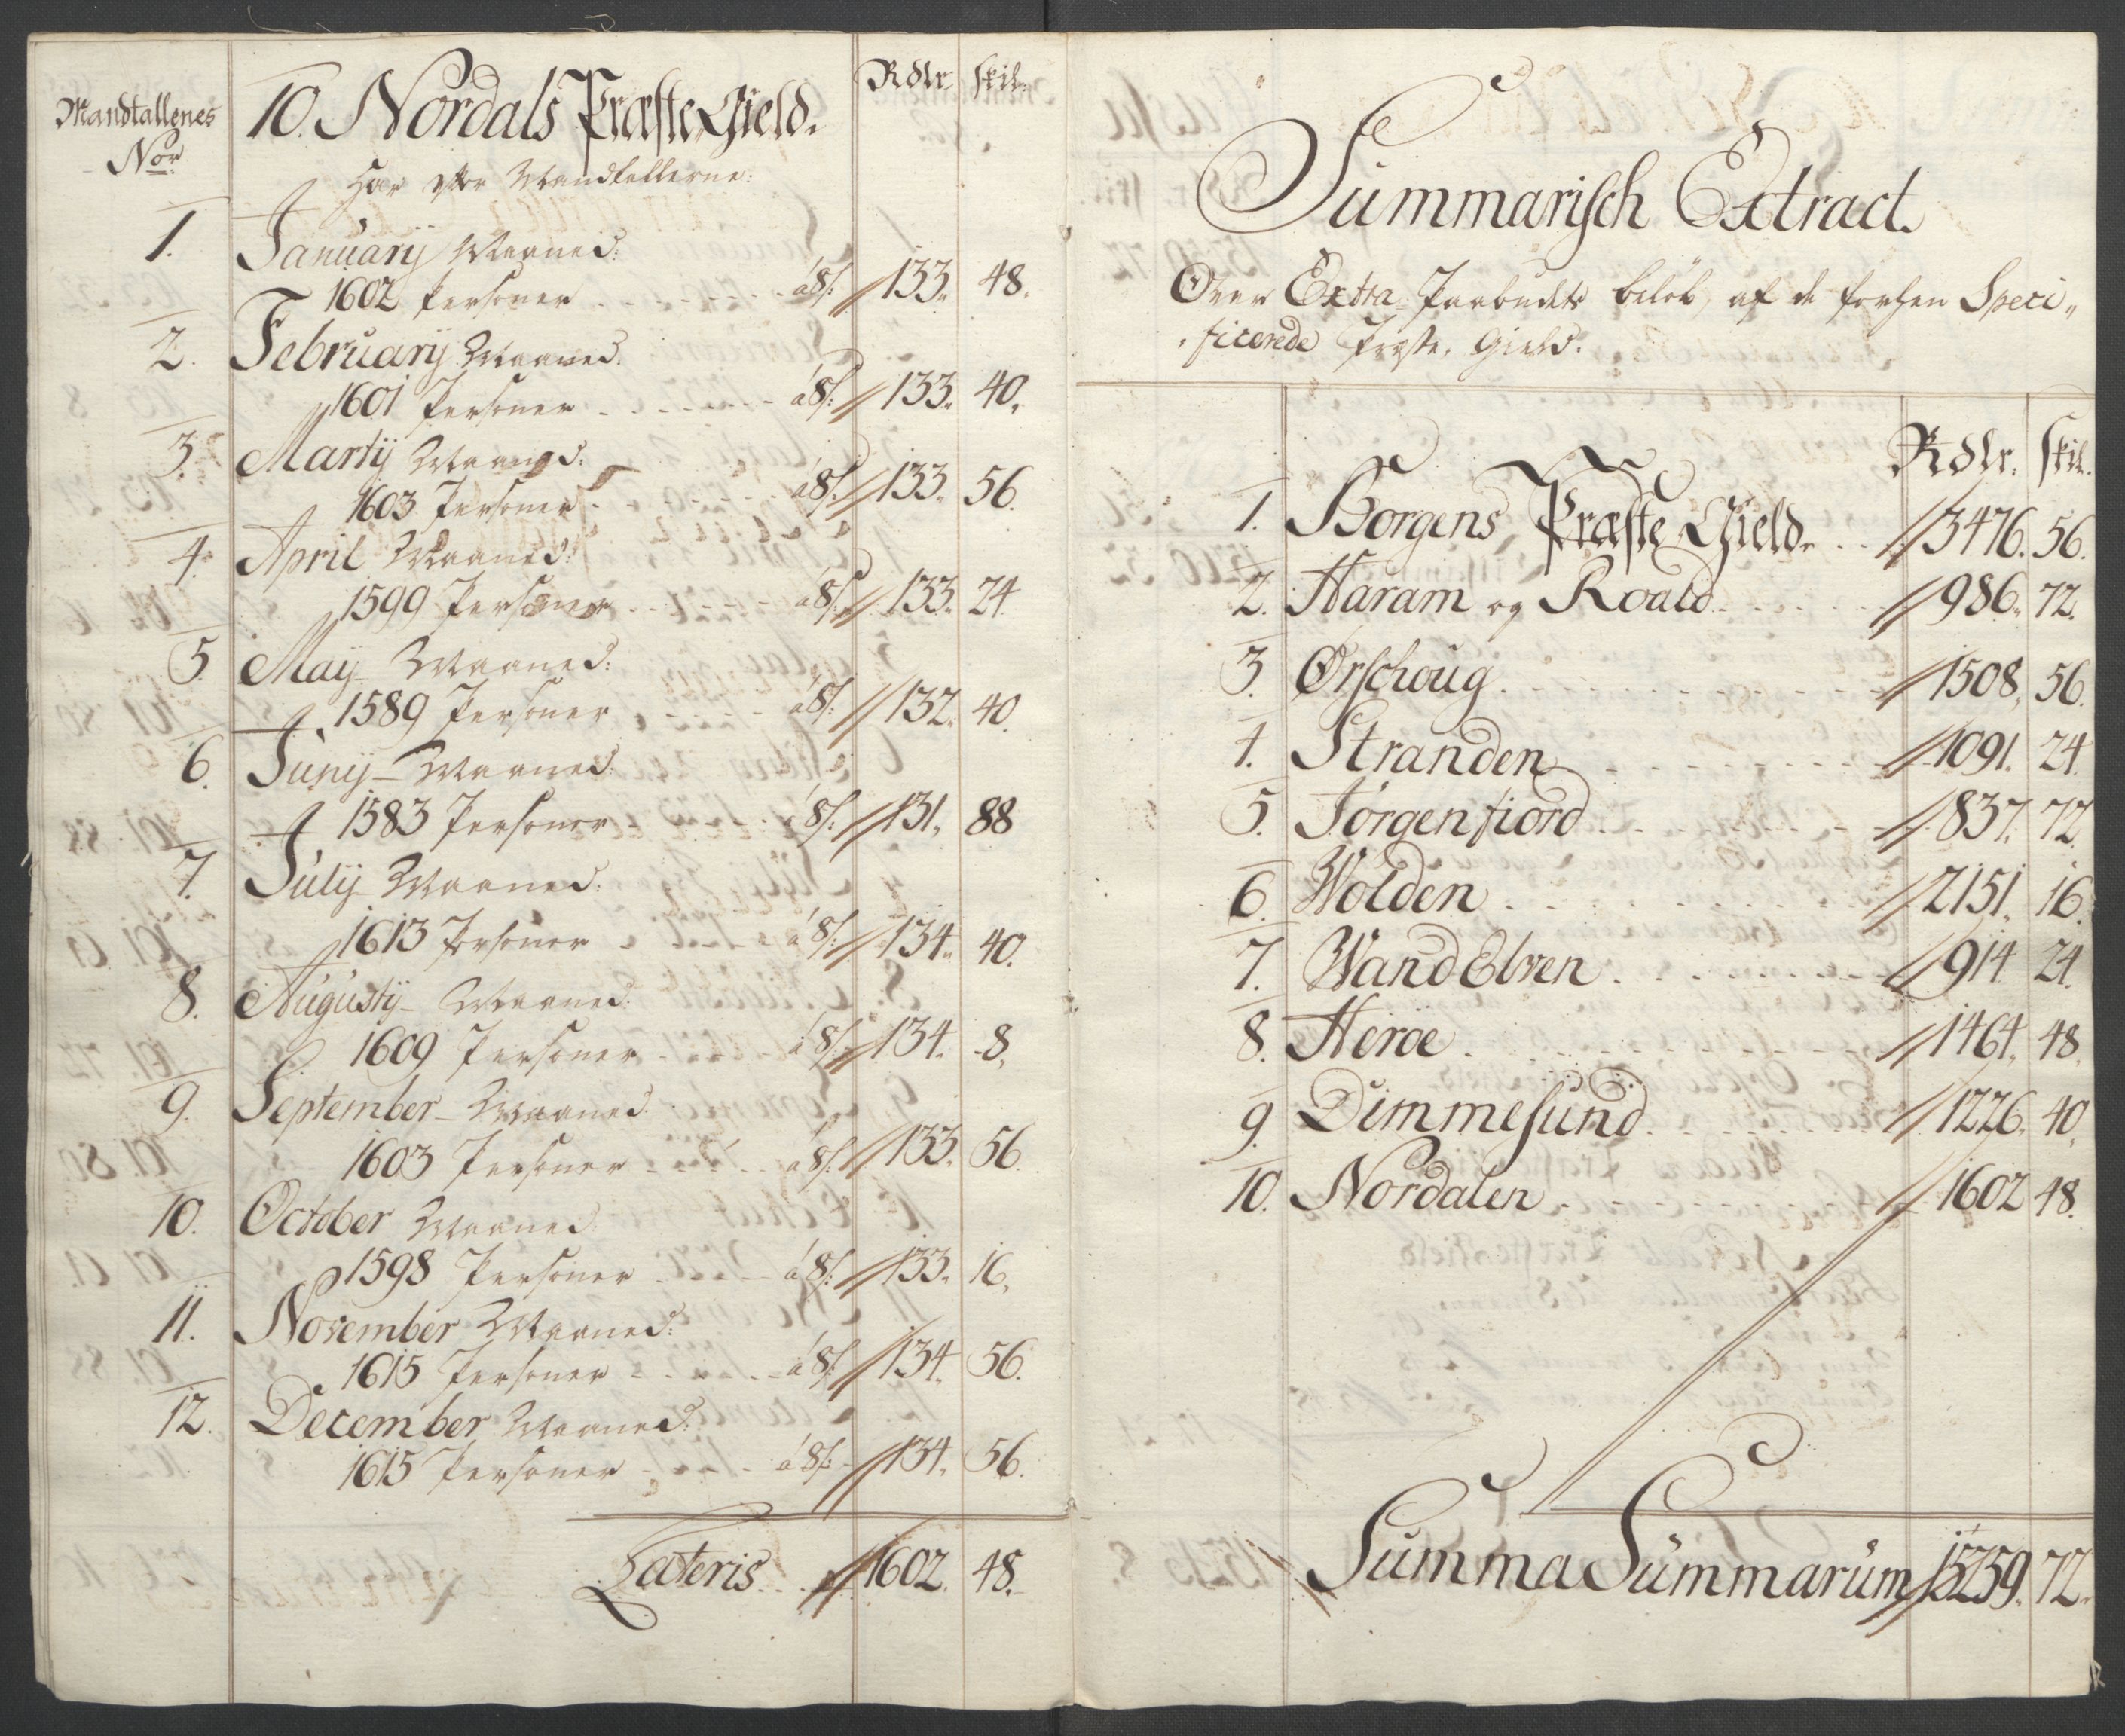 Mandtallenes
Nor
10. Nordals Præste Gield.
Rdlr. Skil.
Har efter Mandtallerne:
1. Januarij Maaned:
1602 Personer . . . . . . à 8 s: // 133. 48.
2. Februarij Maaned.
1601 Personer . . . . . . à 8 s: // 133. 40.
3. Martij Maaned:
1603 Personer . . . . . à 8 s: // 133. 56.
4. April Maaned:
1599 Personer . . . . . à 8 s: // 133. 24
5. Maij Maaned:
1589 Personer . . . . . à 8 s: // 132. 40.
6. Junij Maaned.
1583 Personer . . . . . à 8 s: // 131. 88
7. Julij Maaned:
1613 Personer . . . . . à 8 s: // 134. 40.
8. Augustij Maaned.
1609 Personer . . . . . à 8 s: // 134. 8.
9. September Maaned.
1603 Personer . . . . . à 8 s: // 133. 56.
10. October Maaned.
1598 Personer . . . . . à 8 s: // 133. 16.
11. November Maaned:
1615 Personer . . . . . à 8 s: // 134. 56.
12. December Maaned:
1615 Personer . . . . . à 8 s: // 134. 56.
Lateris . . // 1602. 48.
Summarisch Extract.
Over Extra Paabudets beløb, af de forhen Speci„
ficerede Præste, Gield.
Rdlr. Skil.
1. Borgens Præste Gield. . . // 3476. 56.
2. Haram og Roald . . . . . // 986. 72.
3. Ørschoug . . . . . . . . // 1508. 56.
4. Stranden . . . . . . . . // 1091. 24.
5. Jørgenfiord . . . . . . . // 837. 72
6. Wolden . . . . . . . . . // 2151. 16.
7. Wand Elven . . . . . . . // 914 24.
8. Herøe . . . . . . . . . . // 1464. 48.
9. Dimmesund . . . . . . . // 1226. 40.
10. Nordalen . . . . . . . . // 1602 48.
Summa Summarum // 15259. 72.